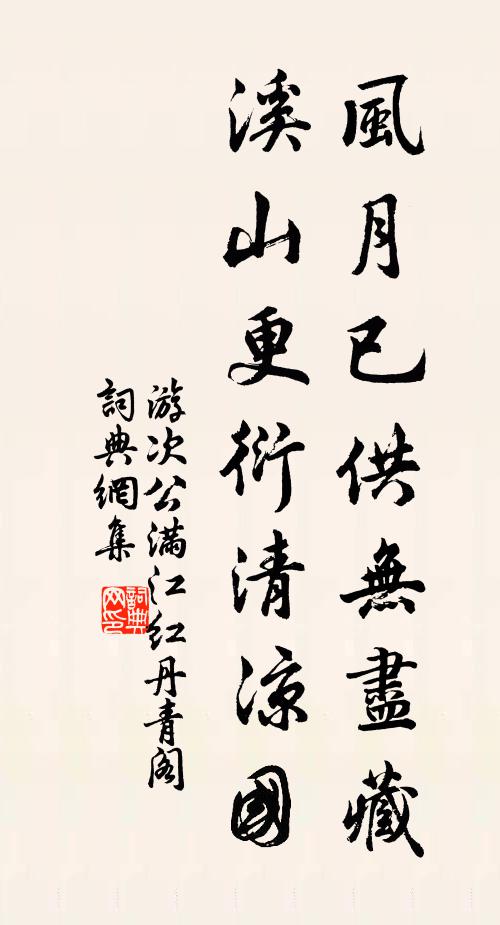 風月已供無盡藏
溪山更衍清涼國
游次公滿江紅丹青閣
詞典網集
詞典网印